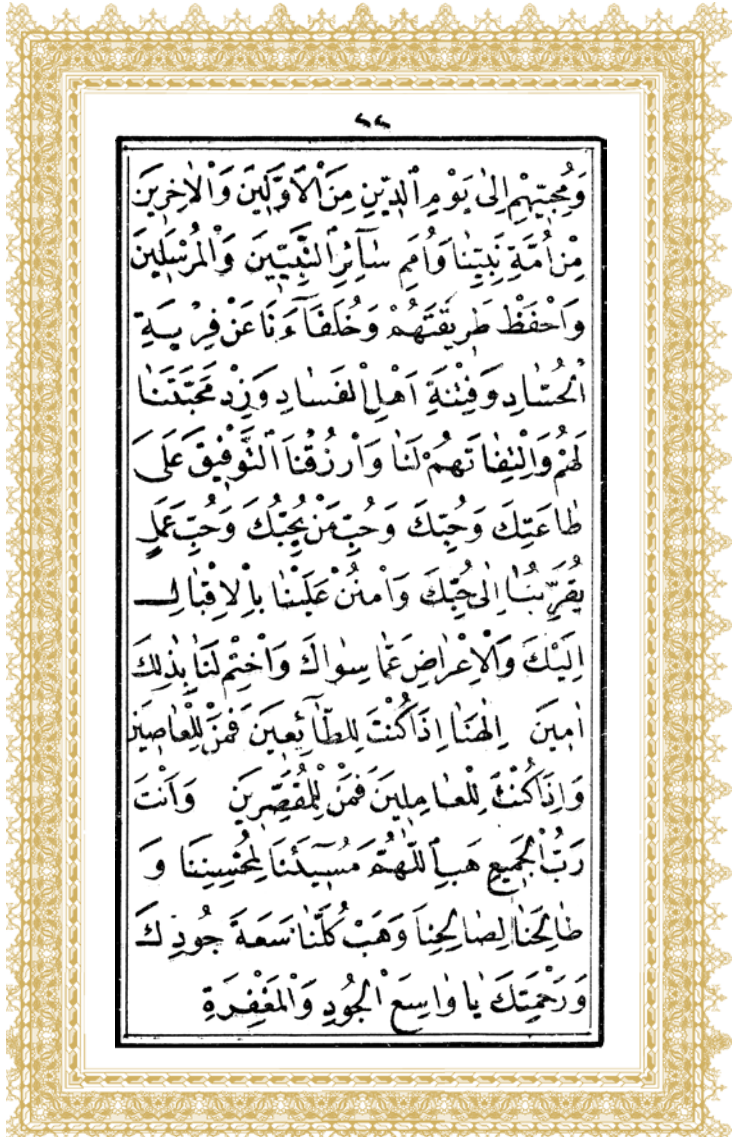 ٦٦
وَمُحِبِّيهِمْ اِلٰى يَوْمِ الدِّينِ مِنَ الْاَوَّلِينَ وَالْاٰخِرِينَ
مِنْ اُمَّةِ نَبِيِّنَا وَاُمَمِ سَآئِرِ النَّبِيِّينَ وَالْمُرْسَلِينَ
وَاحْفَظْ طَرِيقَتَهُمْ وَخُلَفَآءَنَا عَنْ فِرْيَةِ
الْحُسَّادِ وَفِتْنَةِ اَهْلِ الْفَسَادِ وَزِدْ مَحَبَّتَنَا
لَهُمْ وَالْتِفَاتَهُمْ لَنَا وَارْزُقْنَا التَّوْفِيقَ عَلَى
طَاعَتِكَ وَحُبِّكَ وَحُبِّ مَنْ يُحِبُّكَ وَحُبِّ عَمَلٍ
يُقَرِّبُنَا اِلٰى حُبِّكَ وَامْنُنْ عَلَيْنَا بِالْاِقْبَالِ
اِلَيْكَ وَالْاِعْرَاضِ عَمَّا سِوَاكَ وَاخْتِمْ لَنَا بِذٰلِكَ
اٰمِينَ اِلٰهَنَا اِذَا كُنْتَ لِلطَّآئِعِينَ فَمَنْ لِلْعَاصِينَ
وَاِذَا كُنْتَ لِلْعَامِلِينَ فَمَنْ لِلْمُقَصِّرِينَ وَاَنْتَ
رَبُّ الْجَمِيعِ هَبِ اللّٰهُمَّ مُسِيئَنَا لِمُحْسِنِنَا وَ
طَالِحَنَا لِصَالِحِنَا وَهَبْ كُلَّنَا سَعَةَ جُودِكَ
وَرَحْمَتِكَ يَا وَاسِعَ الْجُودِ وَالْمَغْفِرَةِ